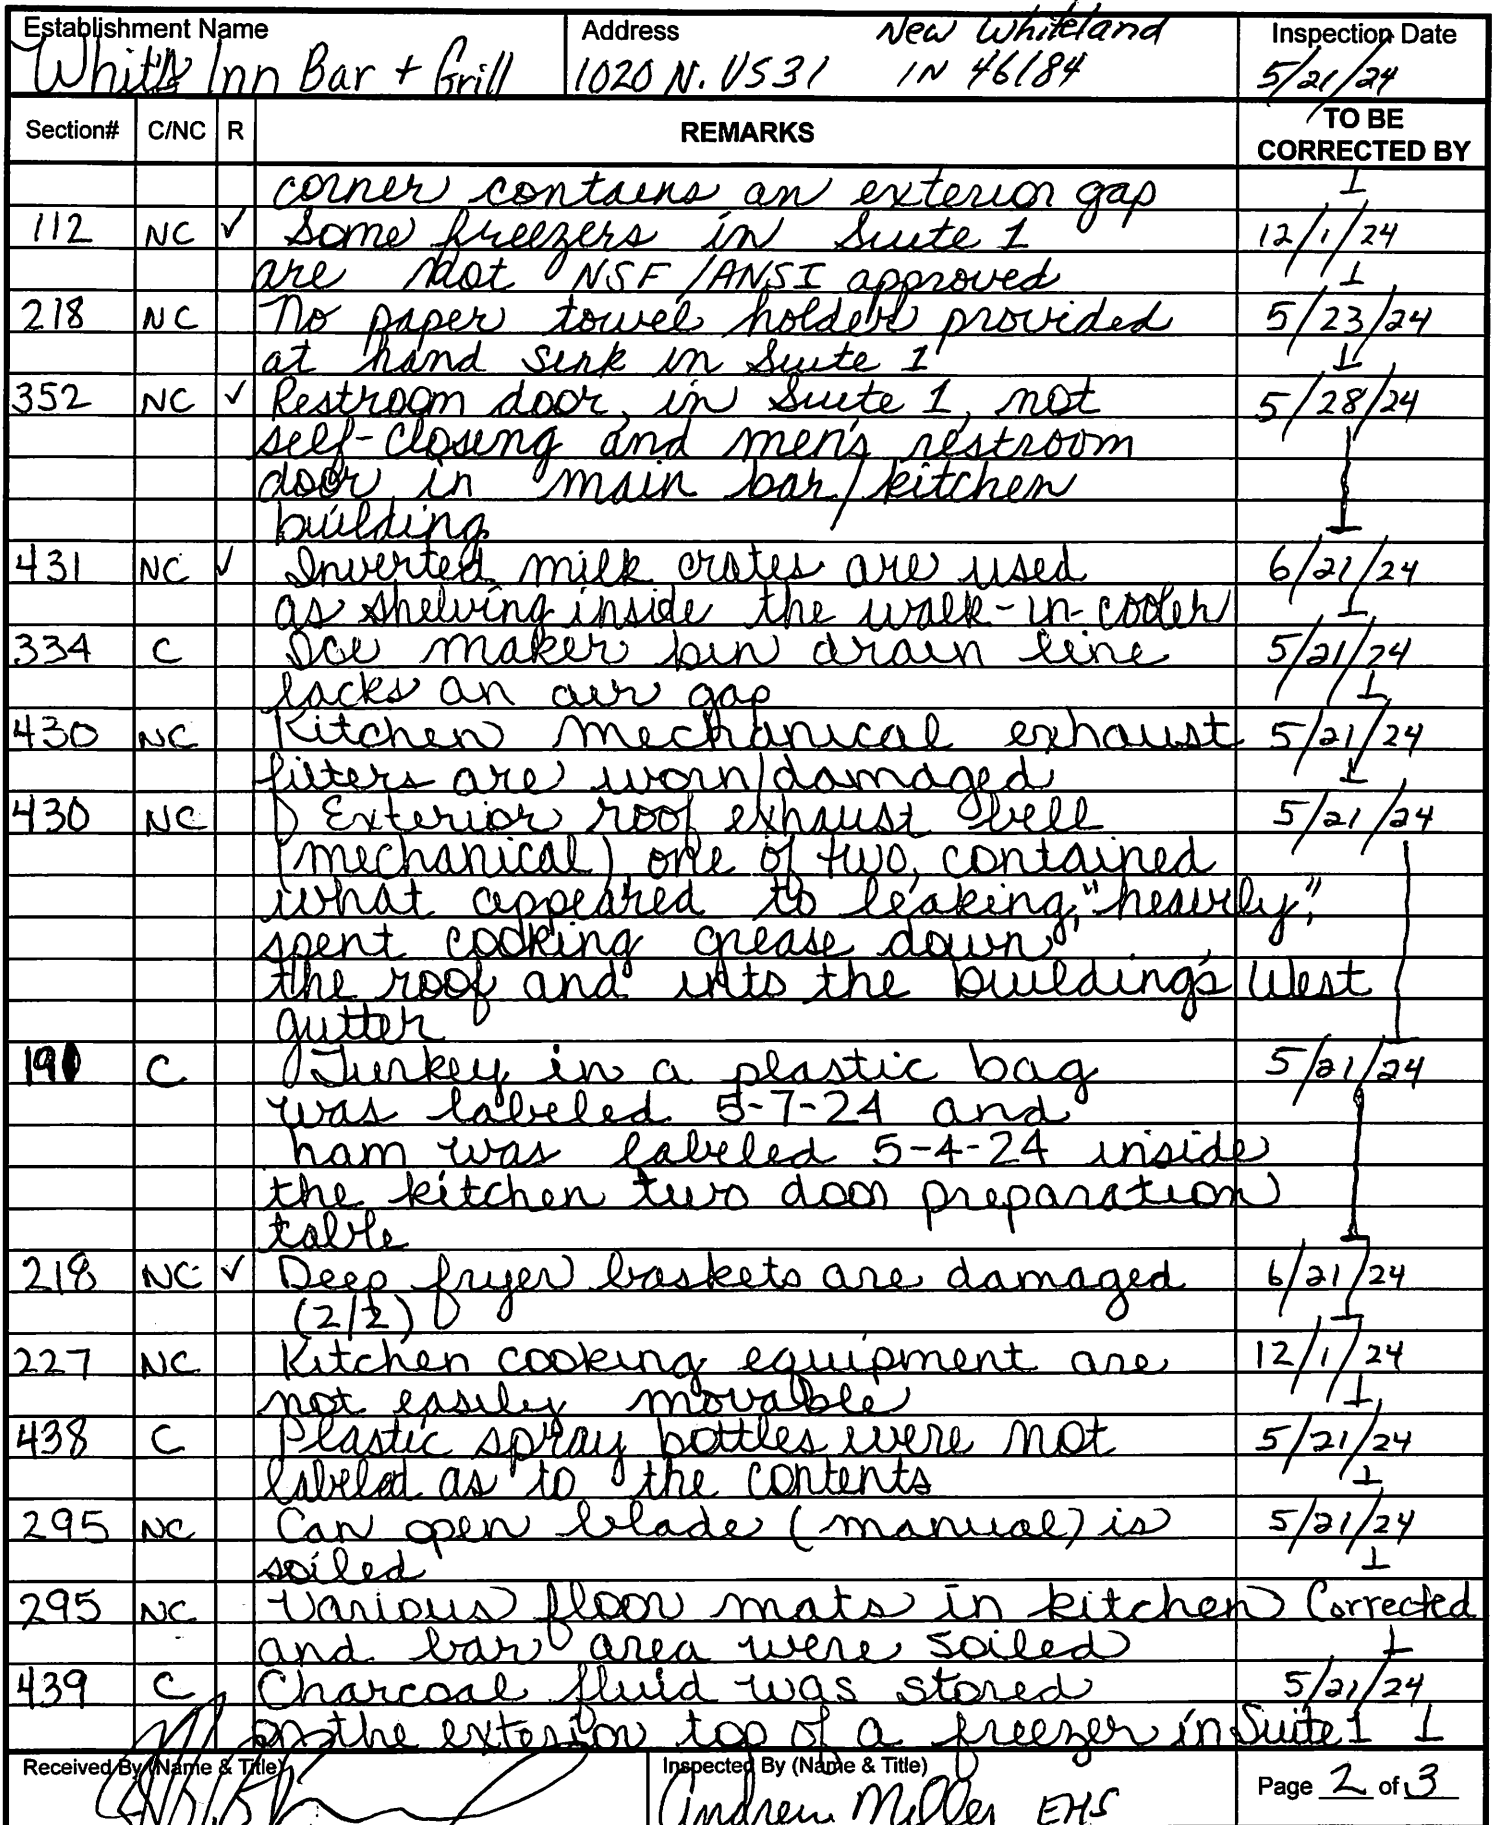 Establishment Name Address New Whiteland Inspection Date
Whit's Inn Bar + Grill 1020 N. US31 IN 46184 5/21/24
Section# C/NC R REMARKS TO BE CORRECTED BY
corner contains an exterior gap
112 NC ✓ Some freezers in Suite 1 12/1/24
are not NSF/ANSI approved
218 NC No paper towel holder provided 5/23/24
at hand sink in Suite 1
352 NC ✓ Restroom door, in Suite 1, not 5/28/24
self-closing and men's restroom
door in main bar/kitchen
building
431 NC ✓ Inverted milk crates are used 6/21/24
as shelving inside the walk-in-cooler
334 C Ice maker bin drain line 5/21/24
lacks an air gap
430 NC Kitchen mechanical exhaust 5/21/24
filters are worn/damaged
430 NC Exterior roof exhaust bell 5/21/24
(mechanical) one of two, contained
what appeared to leaking, "heavily,"
spent cooking grease down
the roof and into the building's West
gutter
191 C Turkey in a plastic bag 5/21/24
was labeled 5-7-24 and
ham was labeled 5-4-24 inside
the kitchen two door preparation
table
218 NC ✓ Deep fryer baskets are damaged 6/21/24
(2/2)
227 NC Kitchen cooking equipment are 12/1/24
not easily movable
438 C Plastic spray bottles were not 5/21/24
labeled as to the contents
295 NC Can open blade (manual) is 5/21/24
soiled
295 NC Various floor mats in kitchen Corrected
and bar area were soiled
439 C Charcoal fluid was stored 5/21/24
on the exterior top of a freezer in Suite 1
Received By (Name & Title) Inspected By (Name & Title) Page 2 of 3
Andrew Miller EHS